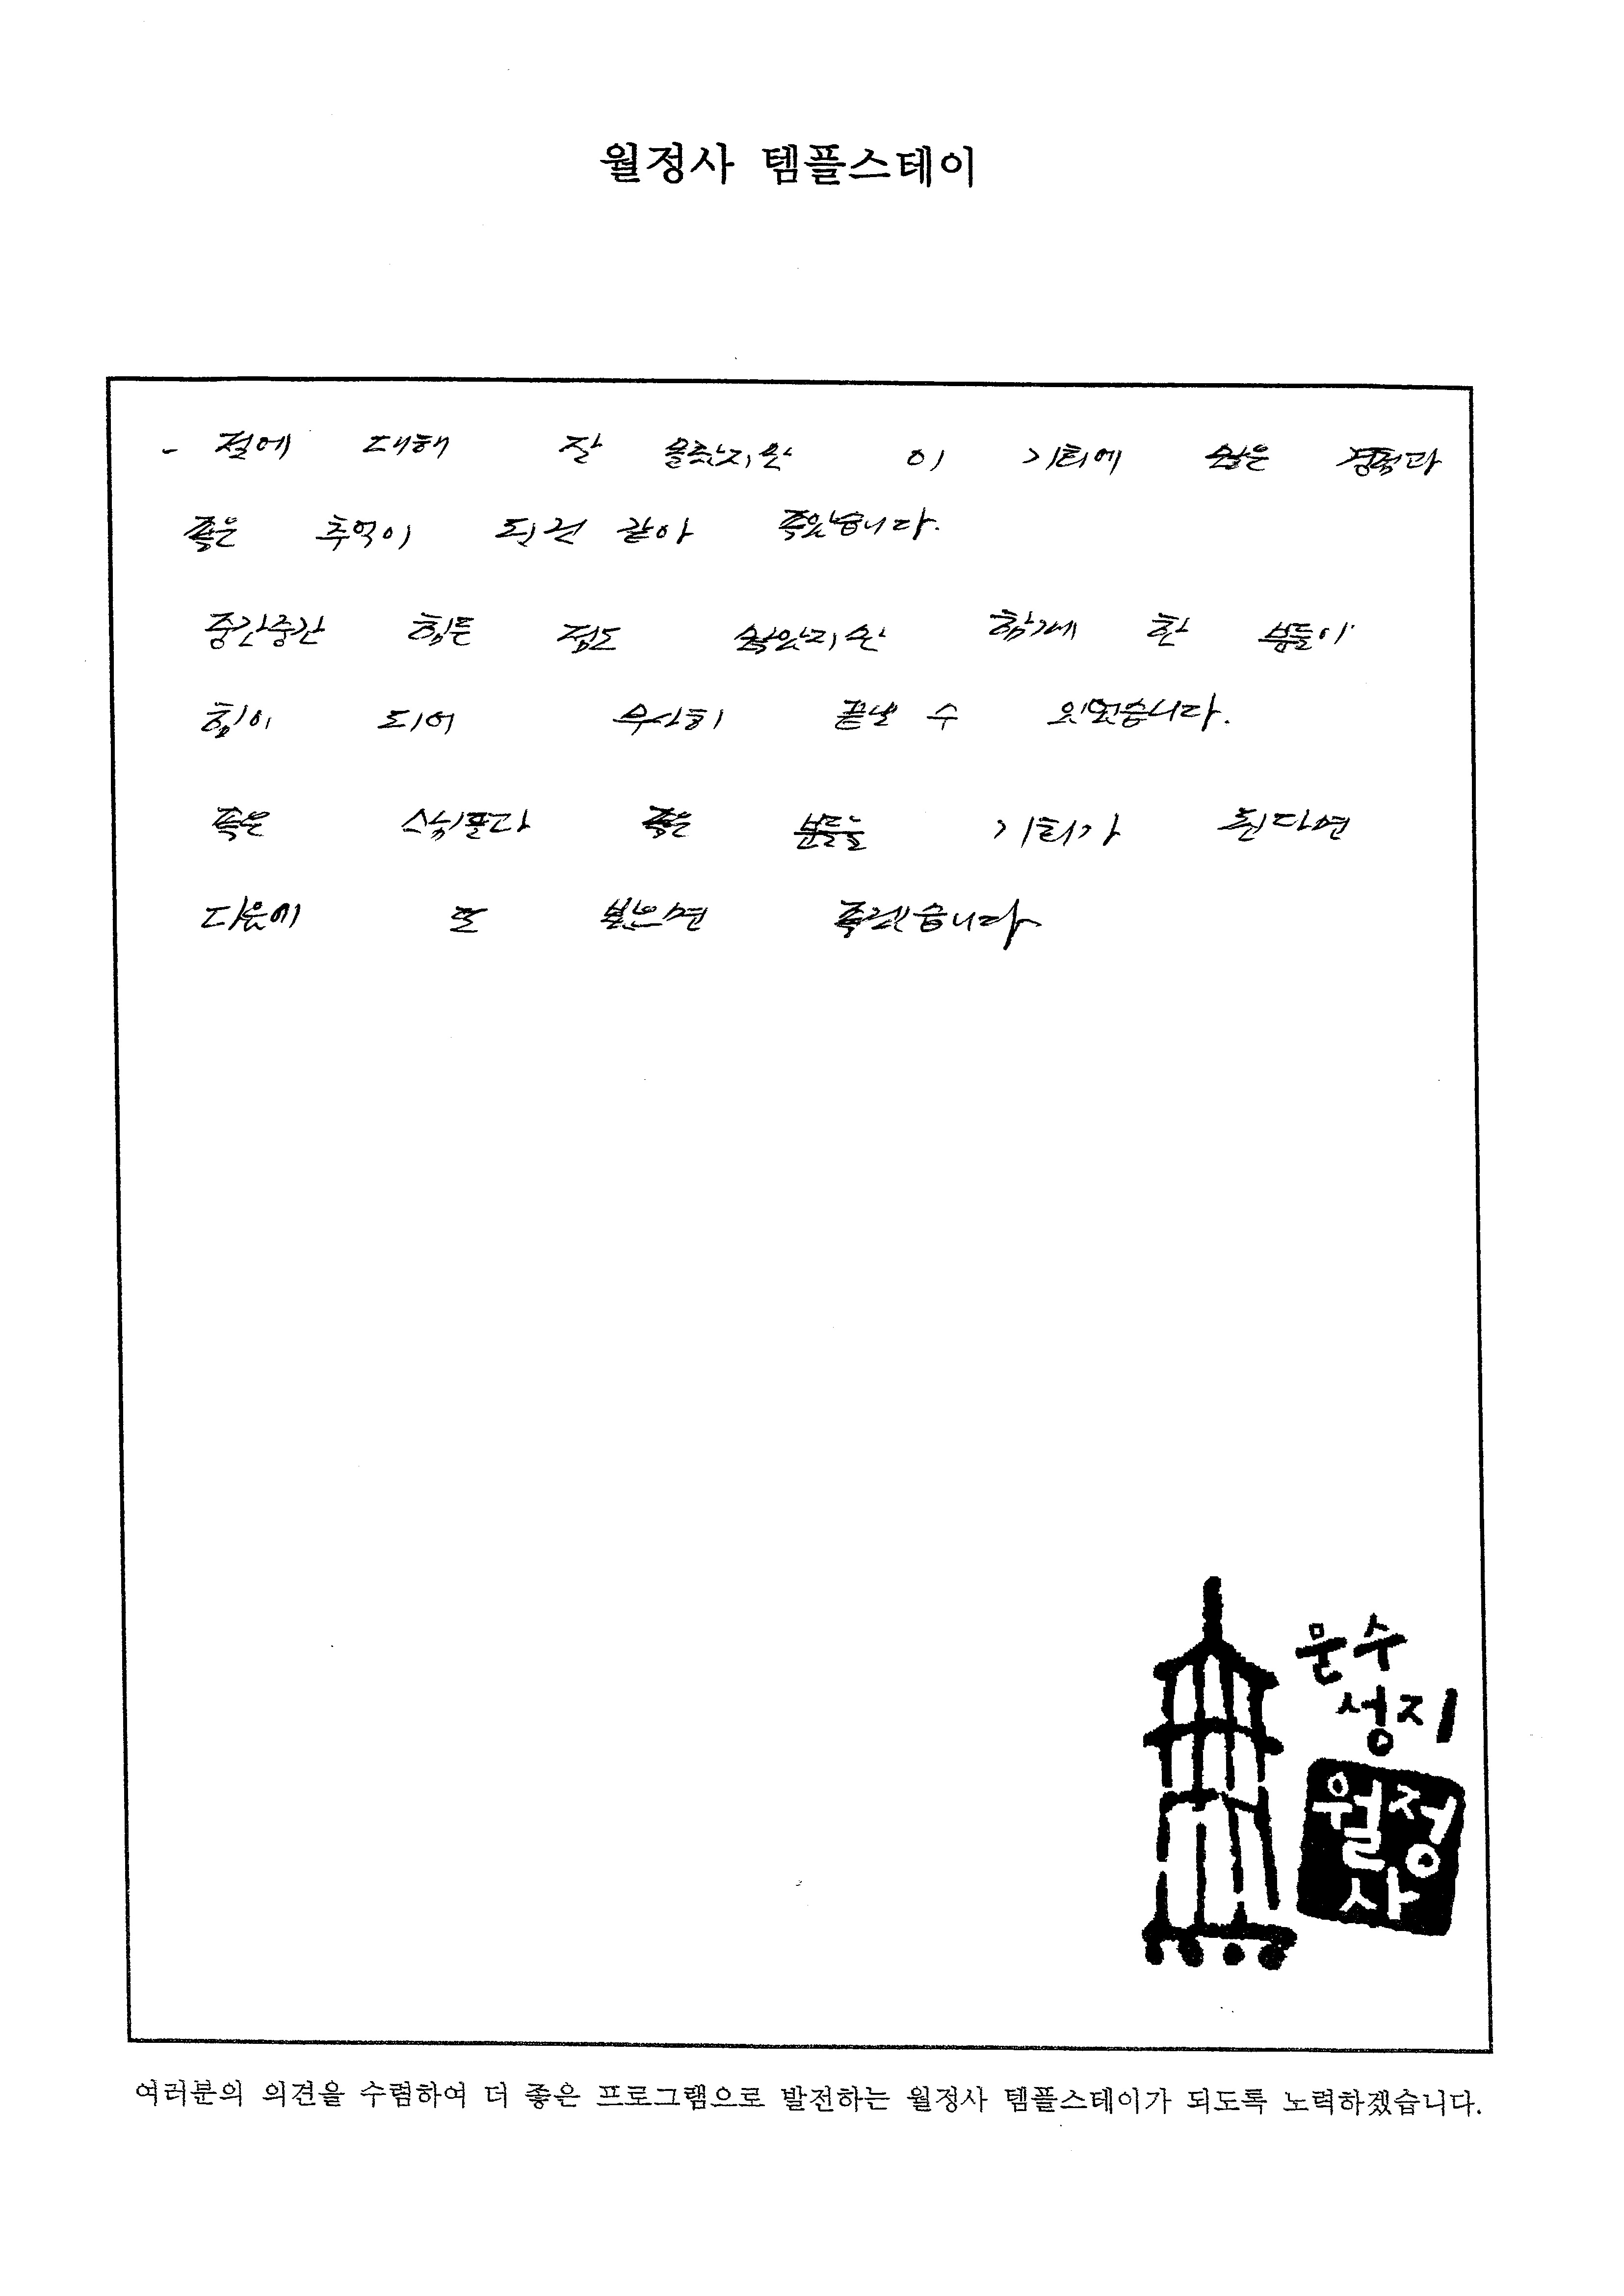 월정사 템플스테이
- 절에 대해 잘 몰랐지만 이 기회에 많은 경험과
좋은 추억이 된건 같아 좋았습니다.
중간중간 힘든 점도 많았지만 함께 한 분들이
힘이 되어 무사히 끝낼 수 있었습니다.
좋은 스님들과 좋은 분들을 기회가 된다면
다음에 또 봤으면 좋겠습니다
문수
성지
월정
사
여러분의 의견을 수렴하여 더 좋은 프로그램으로 발전하는 월정사 템플스테이가 되도록 노력하겠습니다.